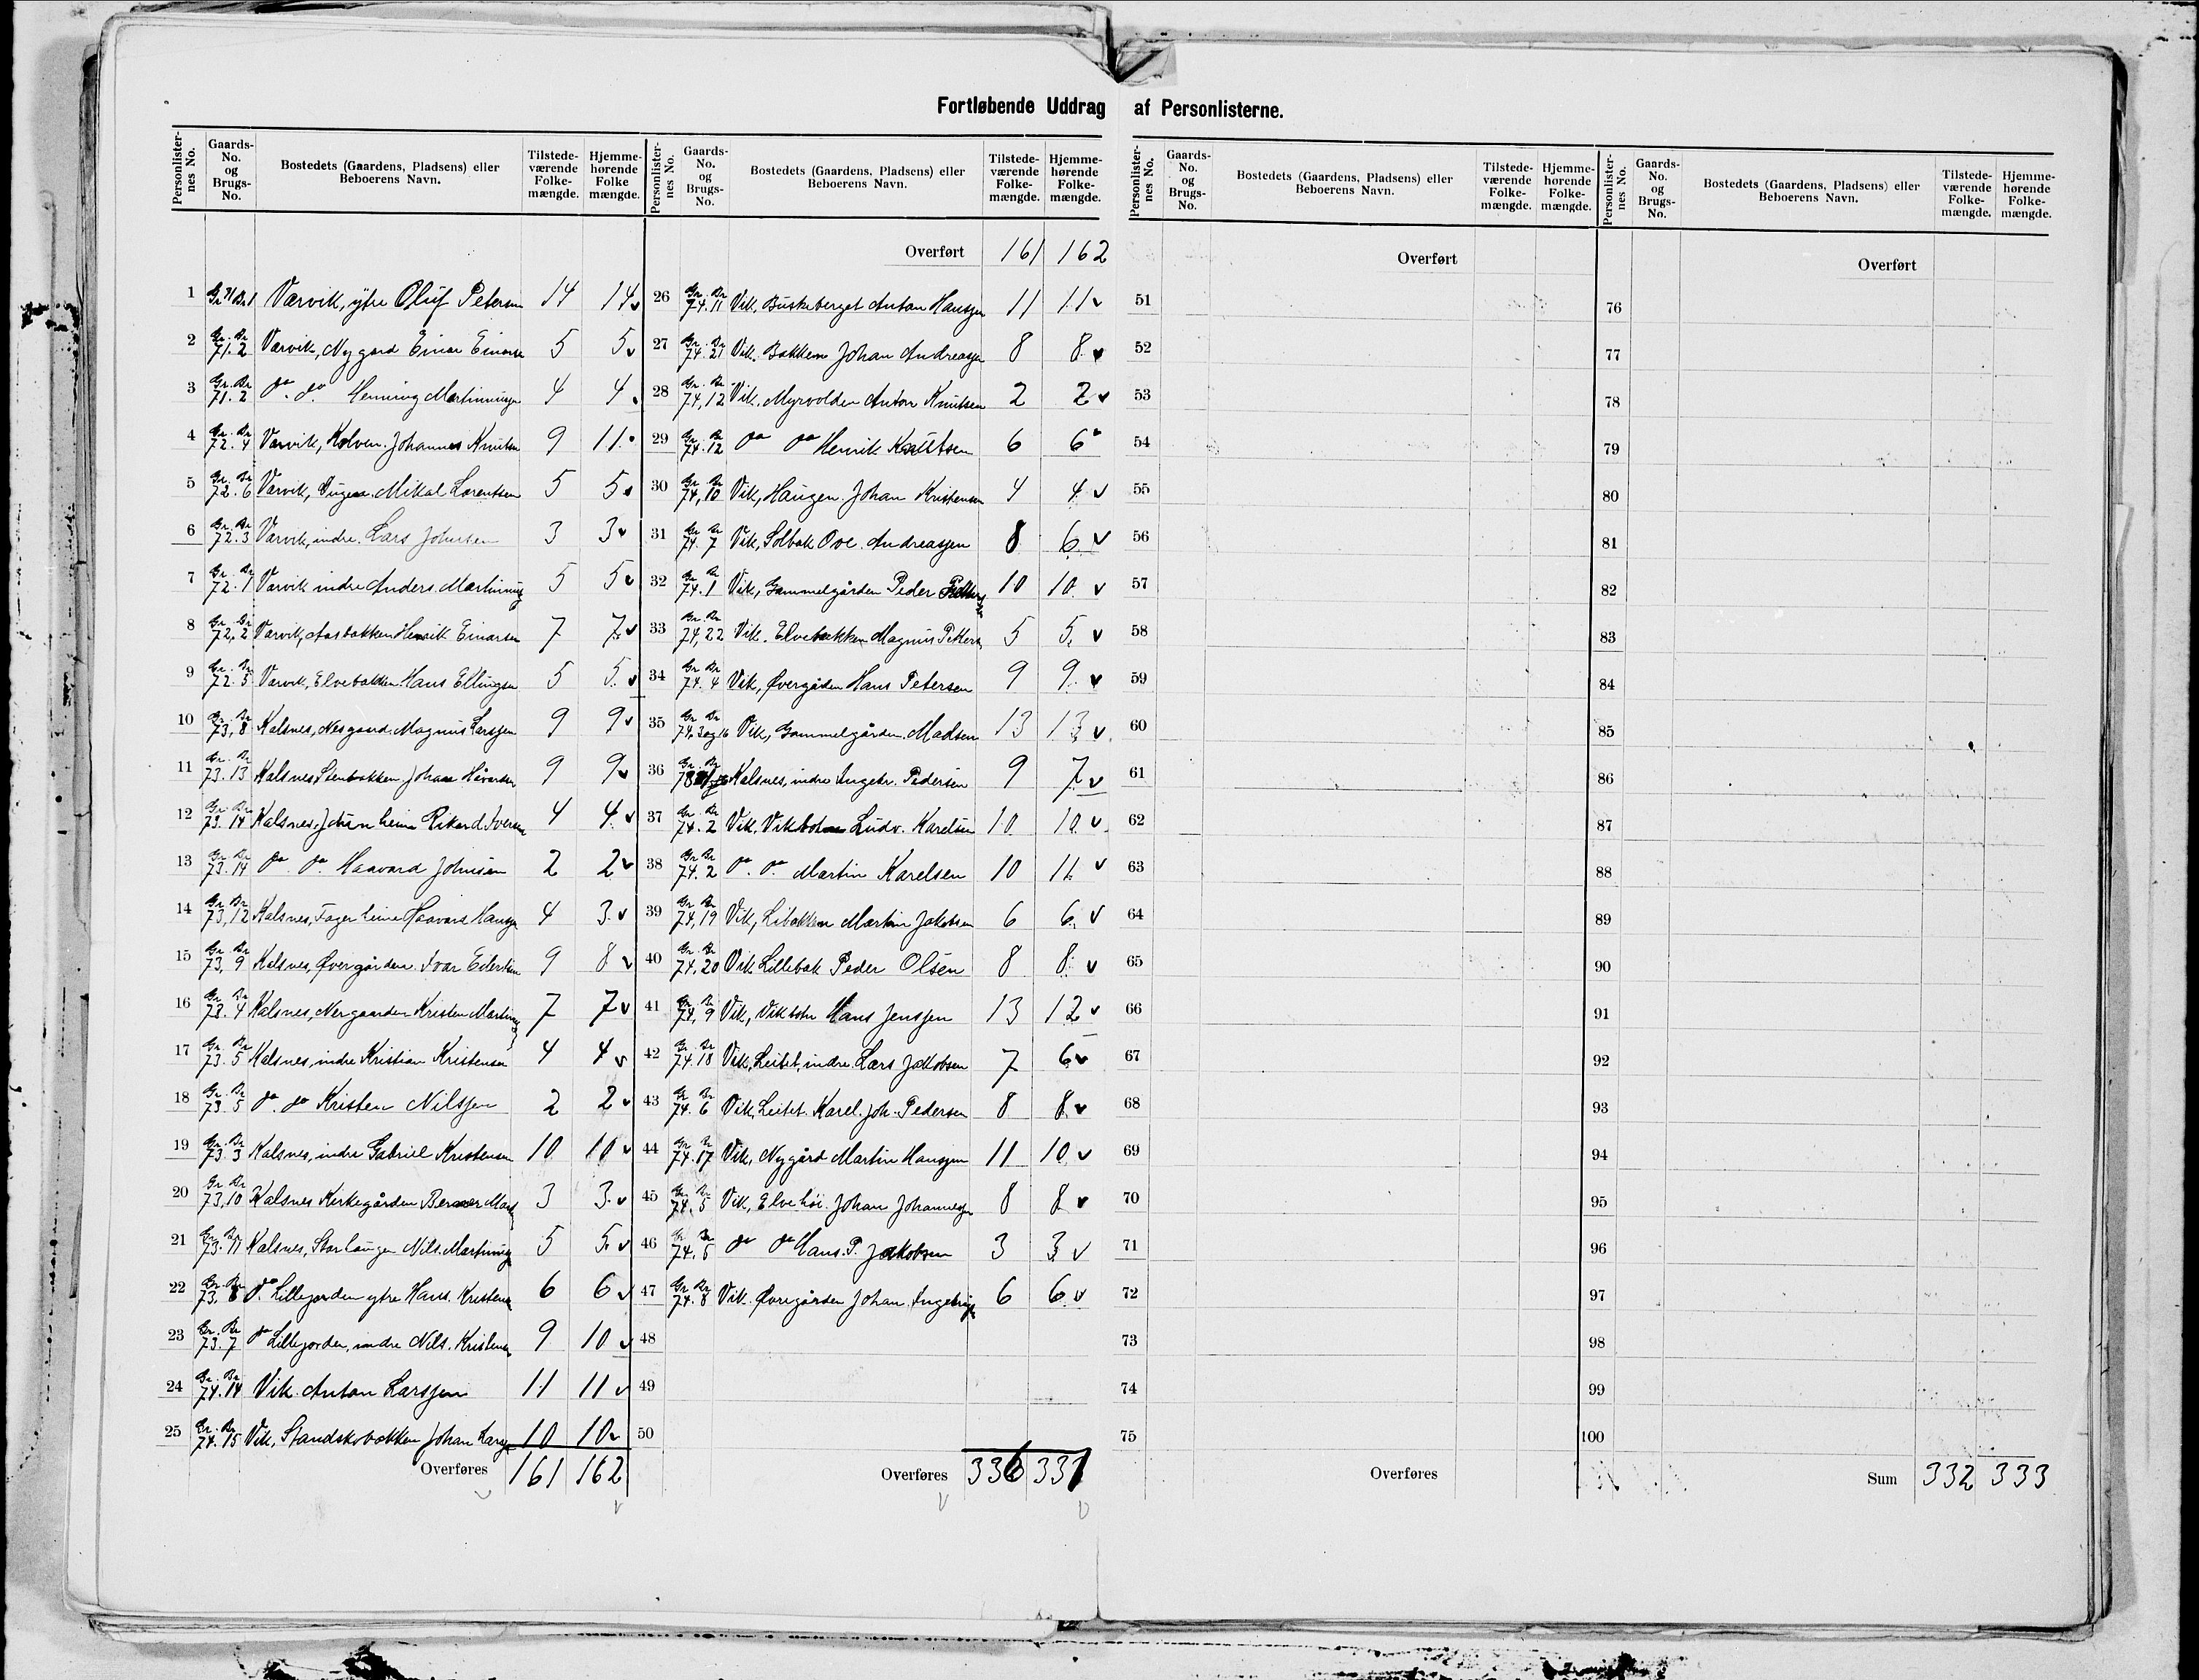 Fortløbende Uddrag af Personlisterne.
Personlisternes No. Gaards-No. og Brugs-No. Bostedets (Gaardens, Pladsens) eller Beboerens Navn. Tilstedeværende Folkemængde. Hjemmehørende Folkemængde.
1 Gr 71 Br 1 Værvik, ytre Oluf Petersen 14 14
2 Gr. Br 71. 2 Værvik, Nygard Einar Einarse 5 5
3 Gr. Br 71. 2 do. do. Henning Martinussen 4 4
4 Gr. Br 72. 4 Værvik, Kolven. Johannes Knutsen 9 11
5 Gr. Br 72. 6 Værvik, Mikal Lorentsen 5 5
6 Gr. Br 72. 3 Værvik, indre. Lars Johnsen 3 3
7 Gr. Br 72. 1 Værvik indre Anders. Martinusg 5 5
8 Gr. Br 72. 2 Værvik, Aasbakken Henrik Einarsen 7 7
9 Gr. Br 72. 5 Værvik, Elvebakken. Hans Ellingsen 5 5
10 Gr. Br 73, 8 Kalsnes, Nesgaard. Magnus Larssen 9 9
11 Gr. Br 73. 13 Kalsnes, Stenbakken. Johan Håvardsen 9 9
12 Gr. Br 73. 14 Kalsnes, heim Rikard Iversen 4 4
13 Gr. Br 73. 14 do. do. Haavard Johnsen 2 2
14 Gr. Br 73, 12 Kalsnes, Fagerheim Haavard Hanssen 4 3
15 Gr. Br 73, 9 Kalsnes, Øvergården. Ivar Edertsen 9 8
16 Gr. Br 73. 4 Kalsnes, Nergaarden Kristen Martinus 7 7
17 Gr. Br 73. 5 Kalsnes, indre Kristian Kristensen 4 4
18 Gr. Br 73. 5 do. do Kristen Nilssen 2 2
19 Gr. Br 73. 3 Kalsnes, indre Gabriel Kristensen 10 10
20 Gr Br 73, 10 Kalsnes Kirkegården Berner Mart 3 3
21 Gr. Br 73. 11 Kalsnes, Storhaugen Nils. Martinusg 5 5
22 Gr. Br 73. 6 do. Lillejorden ytre Hans. Kristens 6 6
23 Gr. Br 73. 7 do Lillejorden, indre Nils. Kristensen 9 10
24 Gr. Br 74. 14 Vik. Anton Larssen 11 11
25 Gr. Br 74. 15 Vik, Standskobakken Johan Larss 10 10
Overføres 161 162
Overført 161 162
26 Gr. Br 74. 11 Vik, Buskeberget Anton Hanssen 11 11
27 Gr. Br 74. 21 Vik. Bakken Johan Andreassen 8 8
28 Gr. Br 74, 12 Vik. Myrvolden Anton Knutsen 2 2
29 Gr. Br 74. 12 do do Henrik Knutsen 6 6
30 Gr. Br 74, 10 Vik, Haugen. Johan Kristensen 4 4
31 Gr Br 74. 7 Vik, Solbak Ove. Andreassen 8 6
32 Gr Br 74. 1 Vik, Gammelgården Peder 10 10
33 Gr. Br 74, 22 Vik. Elvebakken Magnus Petters 5 5
34 Gr. Br 74. 4 Vik, Øvergården Hans Petersen 9 9
35 Gr. Br 74. 3 og 16 Vik, Gammelgården. Madsen 13 13
36 Gr. Br Kalsnes, indre Ingebr. Pedersen 9 7
37 Gr. Br 74. 2 Vik, Vikbotn Ludv. Karelsen 10 10
38 Gr Br 74. 2 do. do. Martin Karelsen 10 11
39 Gr. Br 74, 19 Vik, Libakken Martin Jakobsen 6 6
40 Gr. Br 74, 20 Vik Lillebak Peder Olsen 8 8
41 Gr. Br 74, 9 Vik, Vikbotn Hans Jenssen 13 12
42 Gr. Br 74. 18 Vik, Leitet, indre. Lars Jakobsen 7 6
43 Gr. Br 74. 6 Vik, Leitet. Karel. Joh. Pedersen 8 8
44 Gr. Br 74. 17 Vik, Nygård Martin Hanssen 11 10
45 Gr. Br 74. 5 Vik, Elvehøi. Johan Johannessen 8 8
46 Gr. Br 74. 5 do do Hans. P. Jakobsen 3 3
47 Gr Br 74. 8 Vik. Øvregården Johan. Ingebrigts 6 6
48
49
50
Overføres 336 331
Personlisternes No. Gaards-No. og Brugs-No. Bostedets (Gaardens, Pladsens) eller Beboerens Navn. Tilstedeværende Folkemængde. Hjemmehørende Folkemængde.
Overført
51
52
53
54
55
56
57
58
59
60
61
62
63
64
65
66
67
68
69
70
71
72
73
74
75
Overføres
Overført
76
77
78
79
80
81
82
83
84
85
86
87
88
89
90
91
92
93
94
95
96
97
98
99
100
Sum 332 333